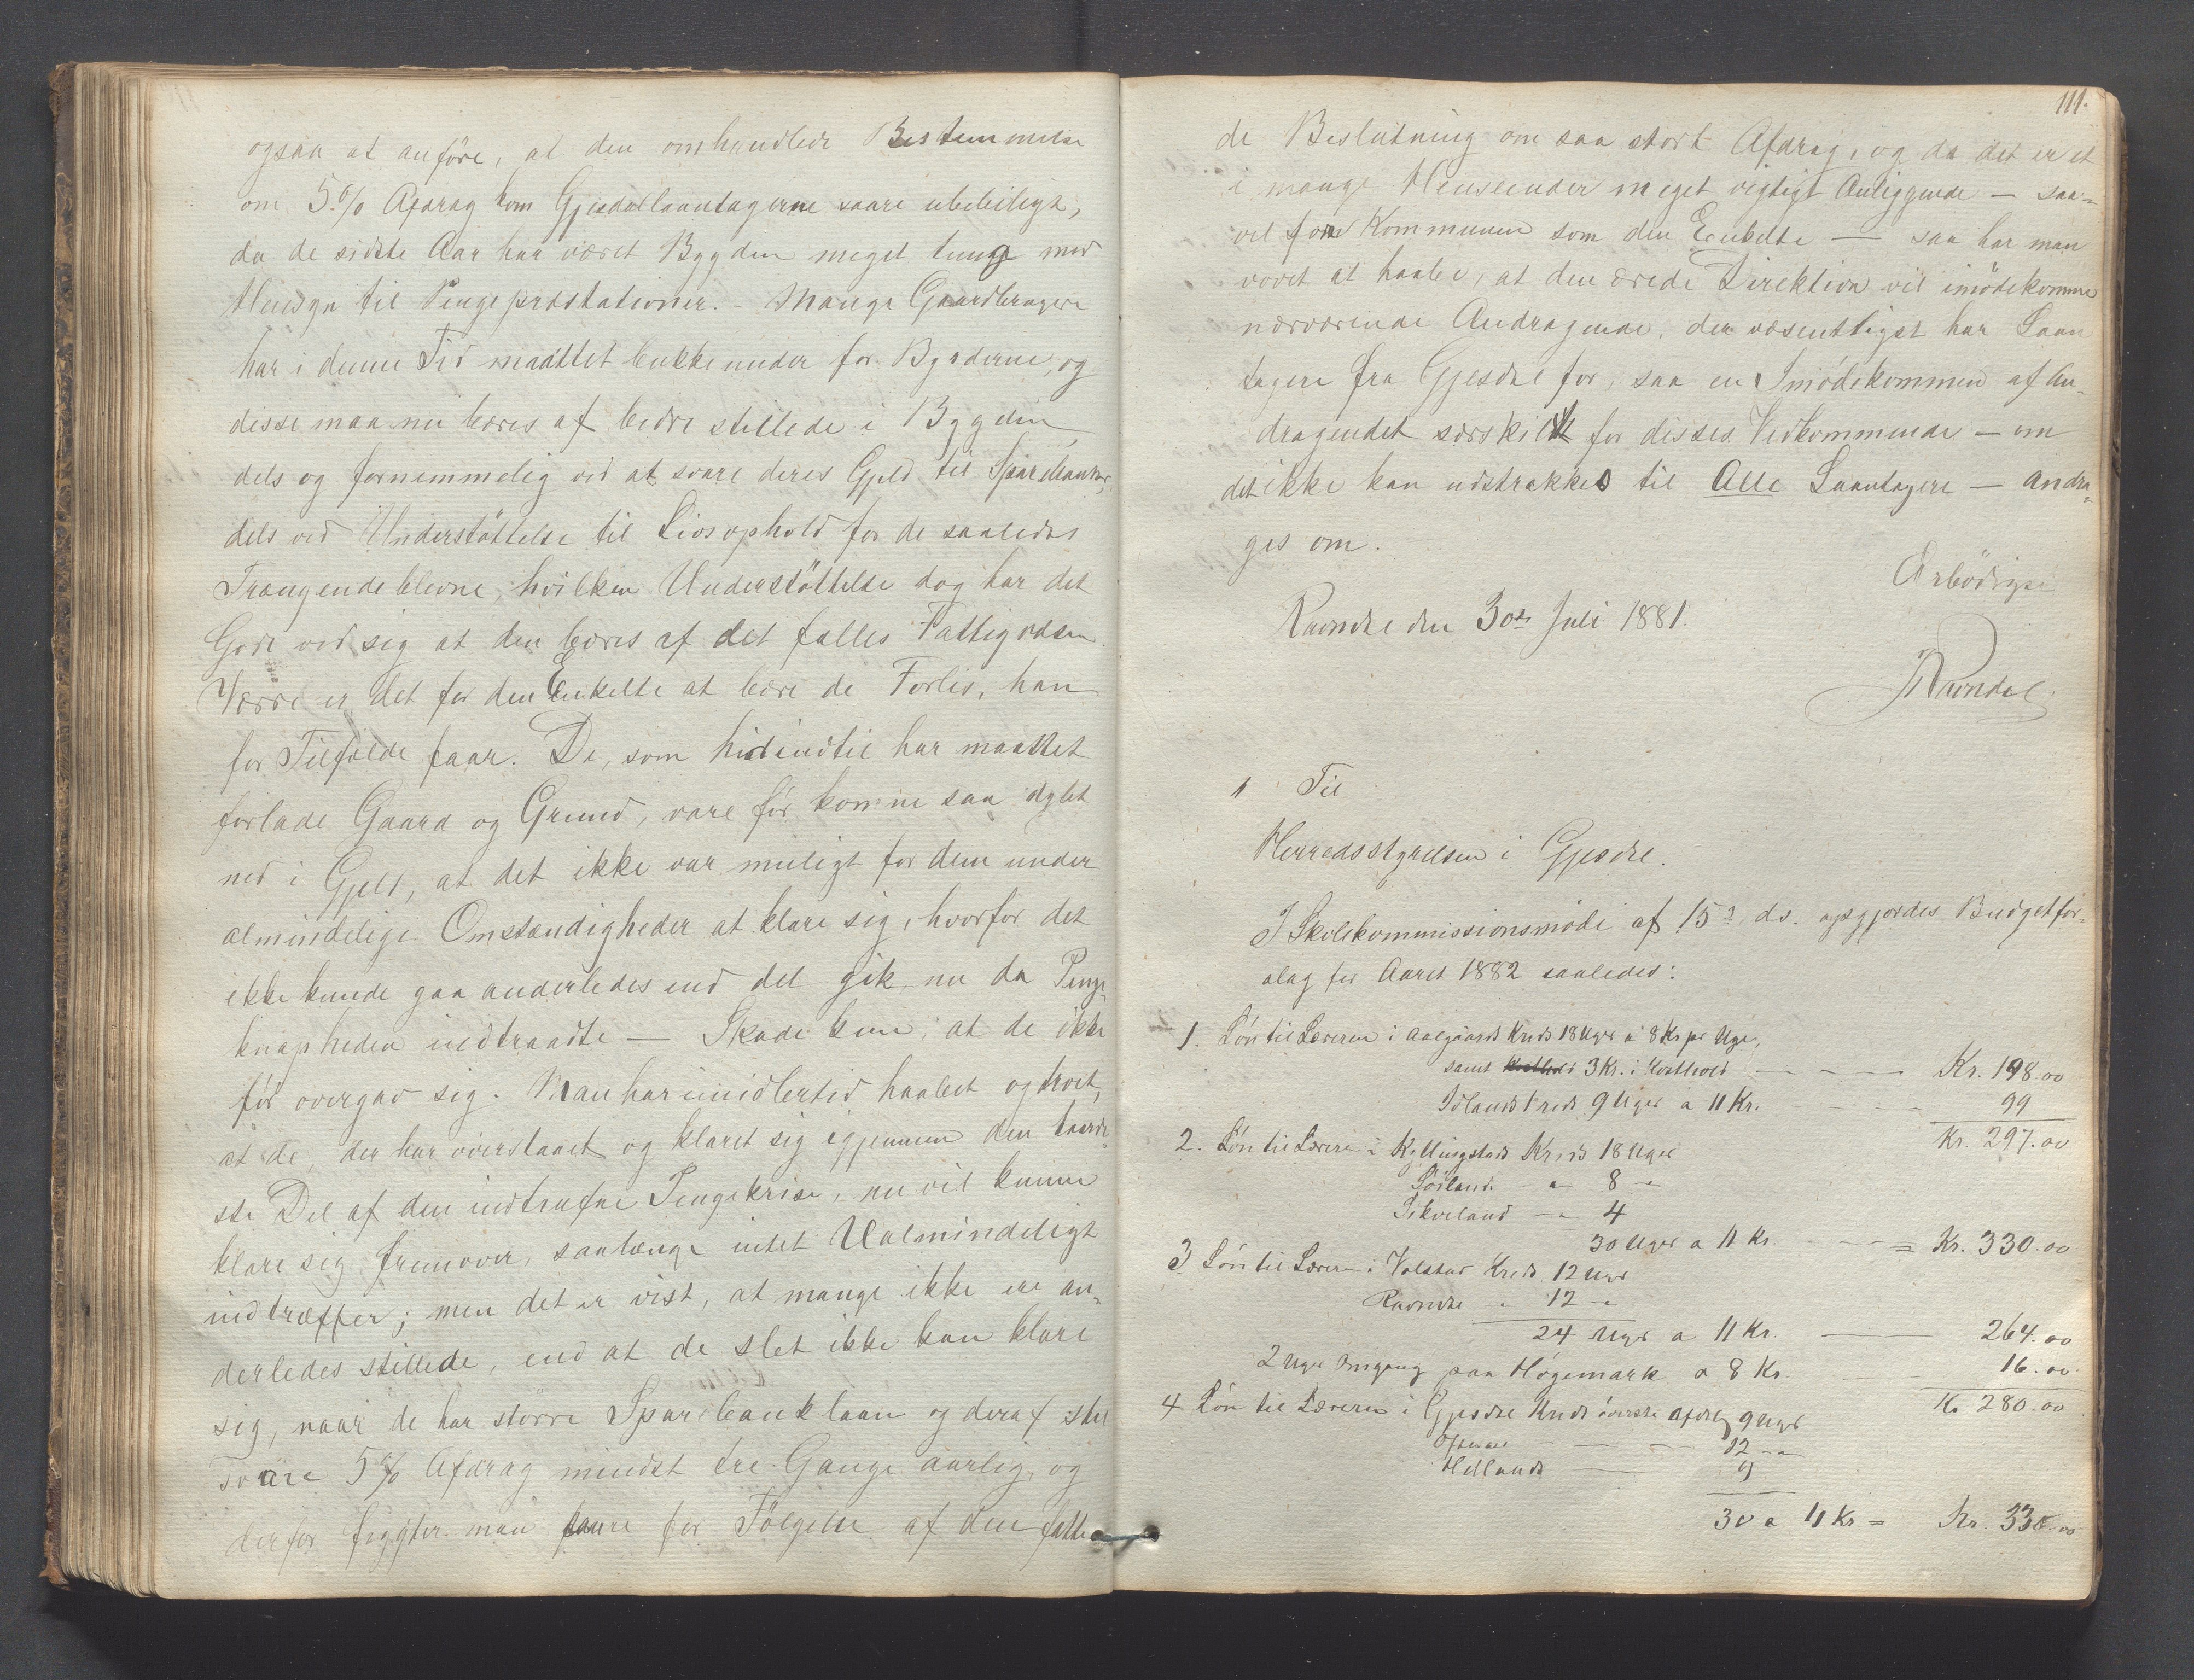 ogsaa at anføre, at den omhandlede Bestemmelse
om 5% Afdrag kom Gjesdallaantagerne saare ubeleiligt,
da de sidste Aar har været Bygden meget tunge med
Hensyn til Pengepræstationer. - Mange Gaardbrugere
har i denne Tid maattet bukke under for Byrderne, og
disse maa nu bæres af bedre stillede i Bygden
dels og fornemmelig ved at svare deres Gjeld til Sparebanker,
dels ved Understøttelse til Livsophold for de saaledes
Trængende blevne, hvilken Understøttelse dog har det
Gode ved sig at den bæres af det fælles Fattigvæsen.
Værre er det for den Enkelte at bære de Forlis, han
for Tilfælde faar. De, som hidindtil har maattet
forlade Gaard og Grund, vare før komne saa dybt
ned i Gjeld, at det ikke var muligt for dem under
almindelige Omstændigheder at klare sig, hvorfor det
ikke kunde gaa anderledes end det gik nu da Penge-
knapheden indtraadte — Skade kun, at de ikke
før overgav sig. Man har imidlertid haabet og troet,
at de, der har overstaaet og klaret sig igjennem den haarde-
ste Del af den indtrufne Pengekrise, nu vil kunne
klare sig fremover, saalænge intet Ualmindeligt
indtræffer; men det er vist, at mange ikke ere an-
derledes stillede, end at de slet ikke kan klare
sig, naar de har større Sparebanklaan og deraf skal
svare 5% Afdrag mindst tre Gange aarlig, og
derfor frygter man saare for Følgelse af den fatte-
111.
de Beslutning om saa stort Afdrag, og da det er et
i mange Henseender meget vigtigt Anliggende — saa-
vel for Kommunen som den Enkelte — saa har man
vovet at haabe, at den ærede Direktion vil imødekomme
nærværende Andragende, der væsentligst har Laan
tagere fra Gjesdal for, saa en Imødekommen af An-
dragendet særskilt for disses Vedkommende — om
det ikke kan udstrækkes til Alle Laantagere — andra-
ges om.
Ærbødigst
Ravndal den 30te Juli 1881.
Ravndal
Til
Herredsstyrelsen i Gjesdal.
I Skolekommissionsmøde af 15de ds. opgjordes Budgetfor-
slag for Aaret 1882 saaledes:
1. Løn til Læreren i Aalgaards Kreds 18 Uger a 8 Kr pr Uge,
samt Kosthold 3 Kr. i Kosthold — — — Kr. 198.00
Idlands Kreds 9 Uger a 11 Kr. 99
Kr. 297.00
2. Løn til Læreren i Kyllingstads Kreds 18 Uger
Søiland - " - 8 -
Skurland - " - 4
30 Uger a 11 Kr. - - - = Kr. 330.00
3 Løn til Læreren i Valstad Kreds 12 Uger
Ravndal " 12 - "
24 Uger a 11 Kr. — 264.00
2 Uger Omgang paa Høgemark a 8 Kr 16.00
Kr 280.00
4 Løn til Læreren i Gjesdal Kreds øverste Afdelg 9 Uger
Oftedal — — 12 - "
Hetlands — 9
30 a 11 Kr = Kr. 330.00